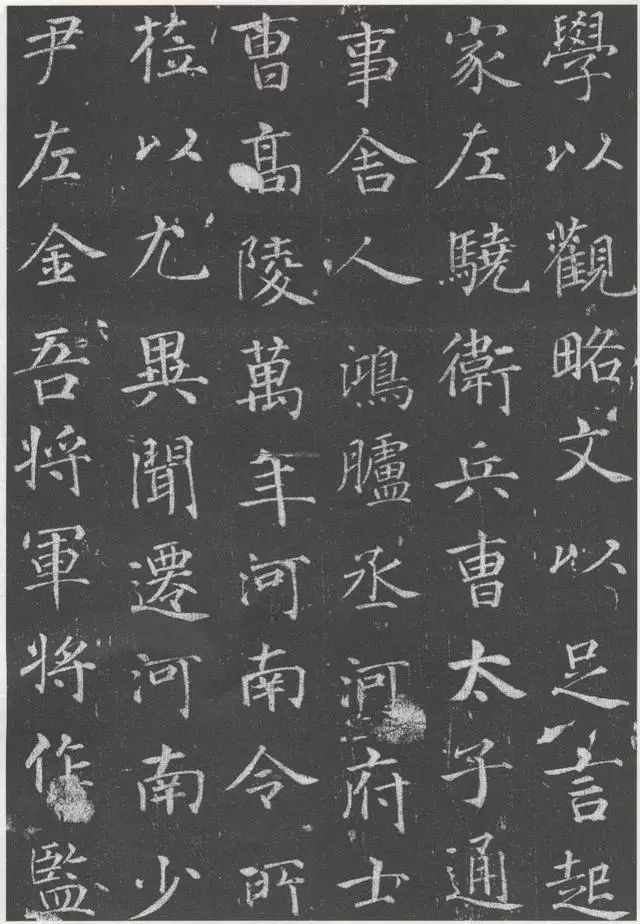 學以觀略文以足言起
家左驍衛兵曹太子通
事舍人鴻臚丞河府士
曹高陵萬年河南令所
莅以尤異聞遷河南少
尹左金吾將軍將作監